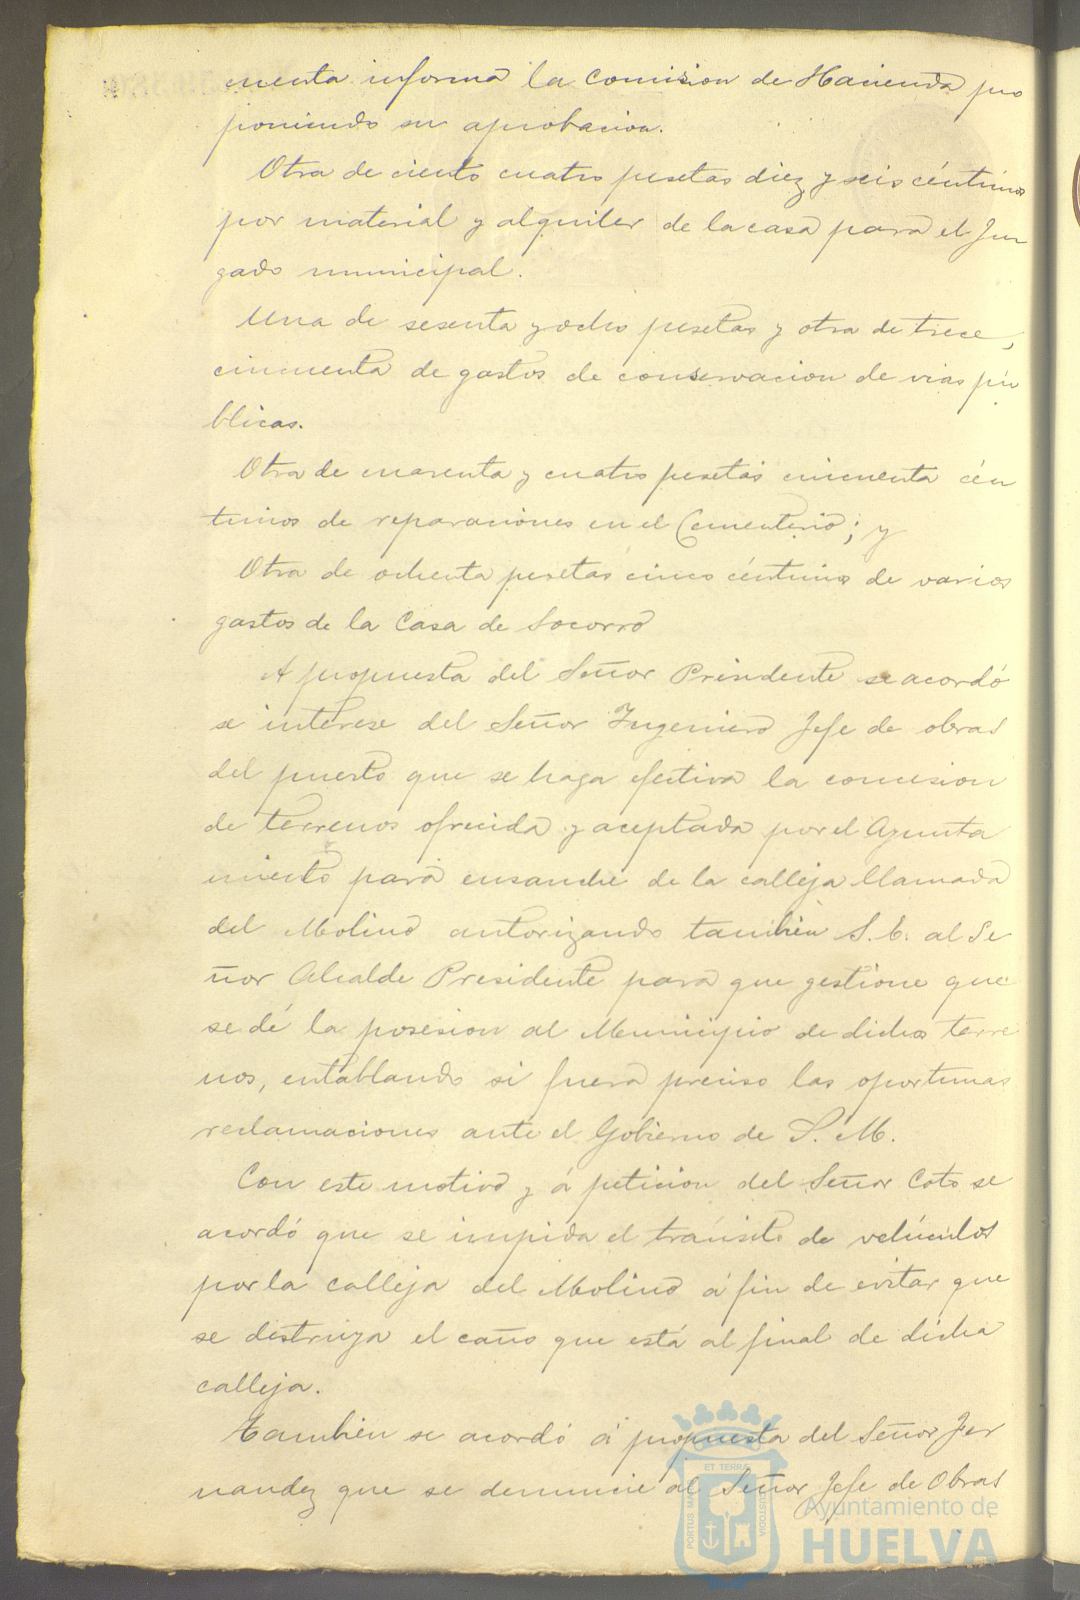 cuenta informa la Comision de Hacienda pro
poniendo su aprobacion.
Otra de ciento cuatro pesetas diez y seis céntimos
por material y alquiler de la casa para el Juz
gado municipal.
Una de sesenta y ocho pesetas y otra de trece,
cincuenta de gastos de conservacion de vias pú
blicas.
Otra de cuarenta y cuatro pesetas cincuenta cén
timos de reparaciones en el Cementerio; y
Otra de ochenta pesetas cinco céntimos de varios
gastos de la Casa de Socorro
A propuesta del Señor Presidente se acordó
se interese del Señor Ingeniero Jefe de obras
del puerto que se haga efectiva la concesion
de terrenos ofrecida y aceptada por el Ayunta
miento para ensanche de la calleja llamada
del Molino autorizando tambien S. E. al Se
ñor Alcalde Presidente para que gestione que
se dé la posesion al Municipio de dichos terre
nos, entablando si fuera preciso las oportunas
reclamaciones ante el Gobierno de S. M.
Con este motivo y á peticion del Señor Coto se
acordó que se impida el tránsito de vehículos
por la calleja del Molino á fin de evitar que
se destruya el caño que está al final de dicha
calleja.
Tambien se acordó á propuesta del Señor Fer
nandez que se denuncie al Señor Jefe de Obras
ET TERRÆ
PORTUS MARIS
CUSTODIA
Ayuntamiento de
HUELVA